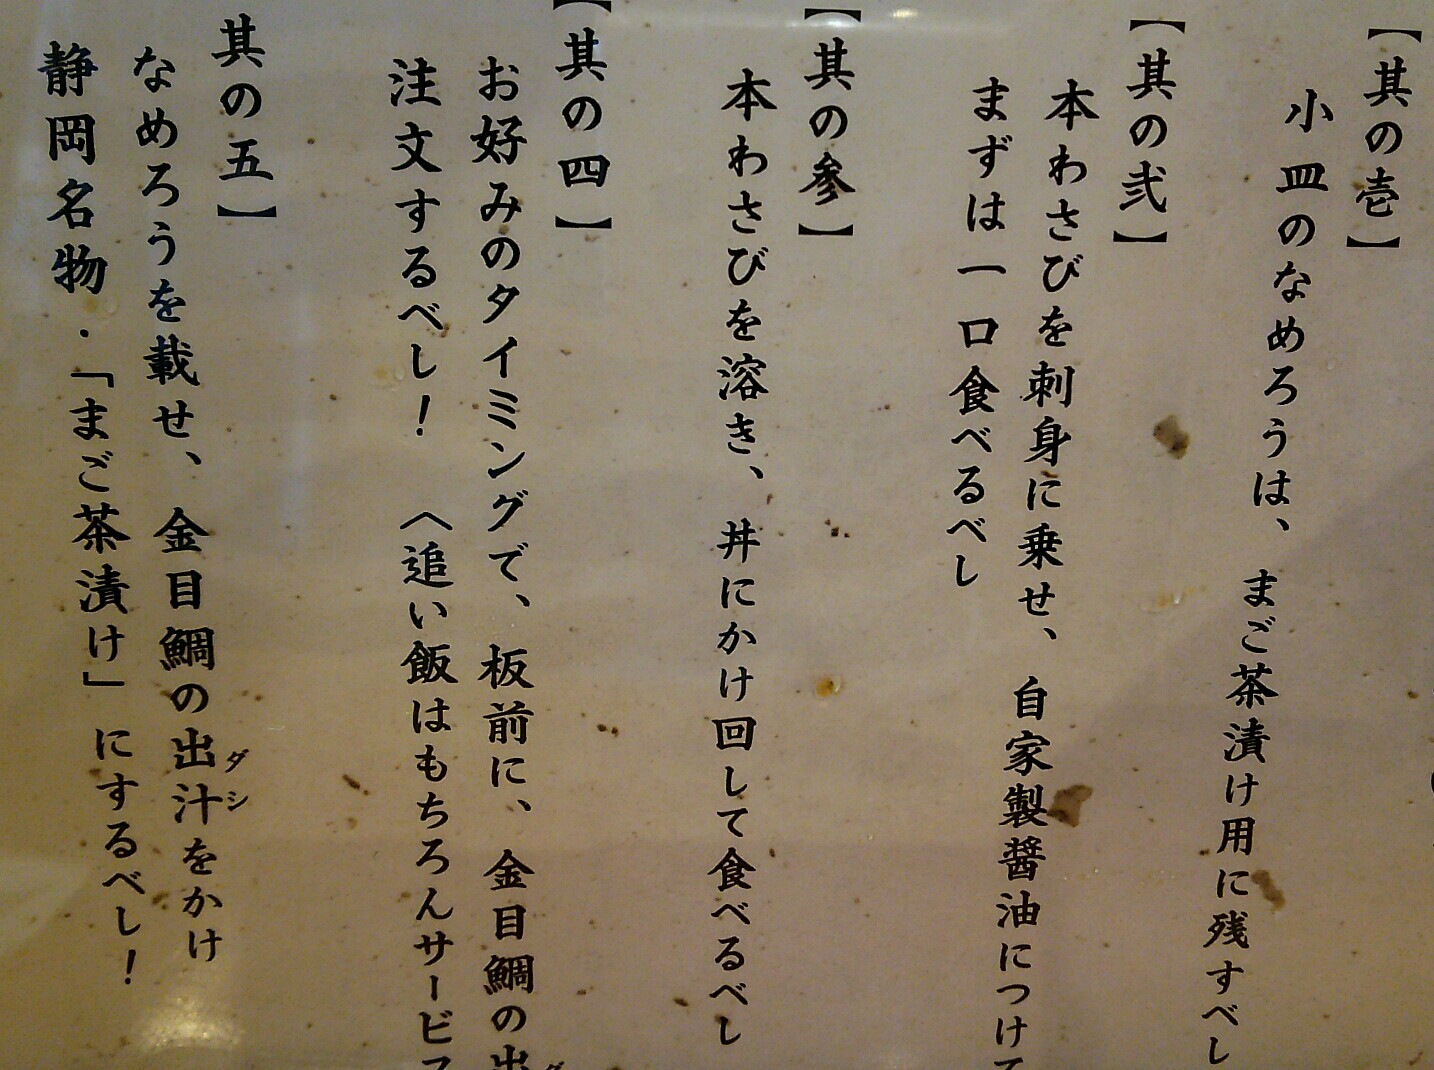 【其の壱】
小皿のなめろうは、まご茶漬け用に残すべし
【其の弐】
本わさびを刺身に乗せ、自家製醤油につけて
まずは一口食べるべし
【其の参】
本わさびを溶き、丼にかけ回して食べるべし
【其の四】
お好みのタイミングで、板前に、金目鯛の出
注文するべし！　〈追い飯はもちろんサービス
其の五】
なめろうを載せ、金目鯛の出汁をかけ
ダシ
静岡名物・「まご茶漬け」にするべし！